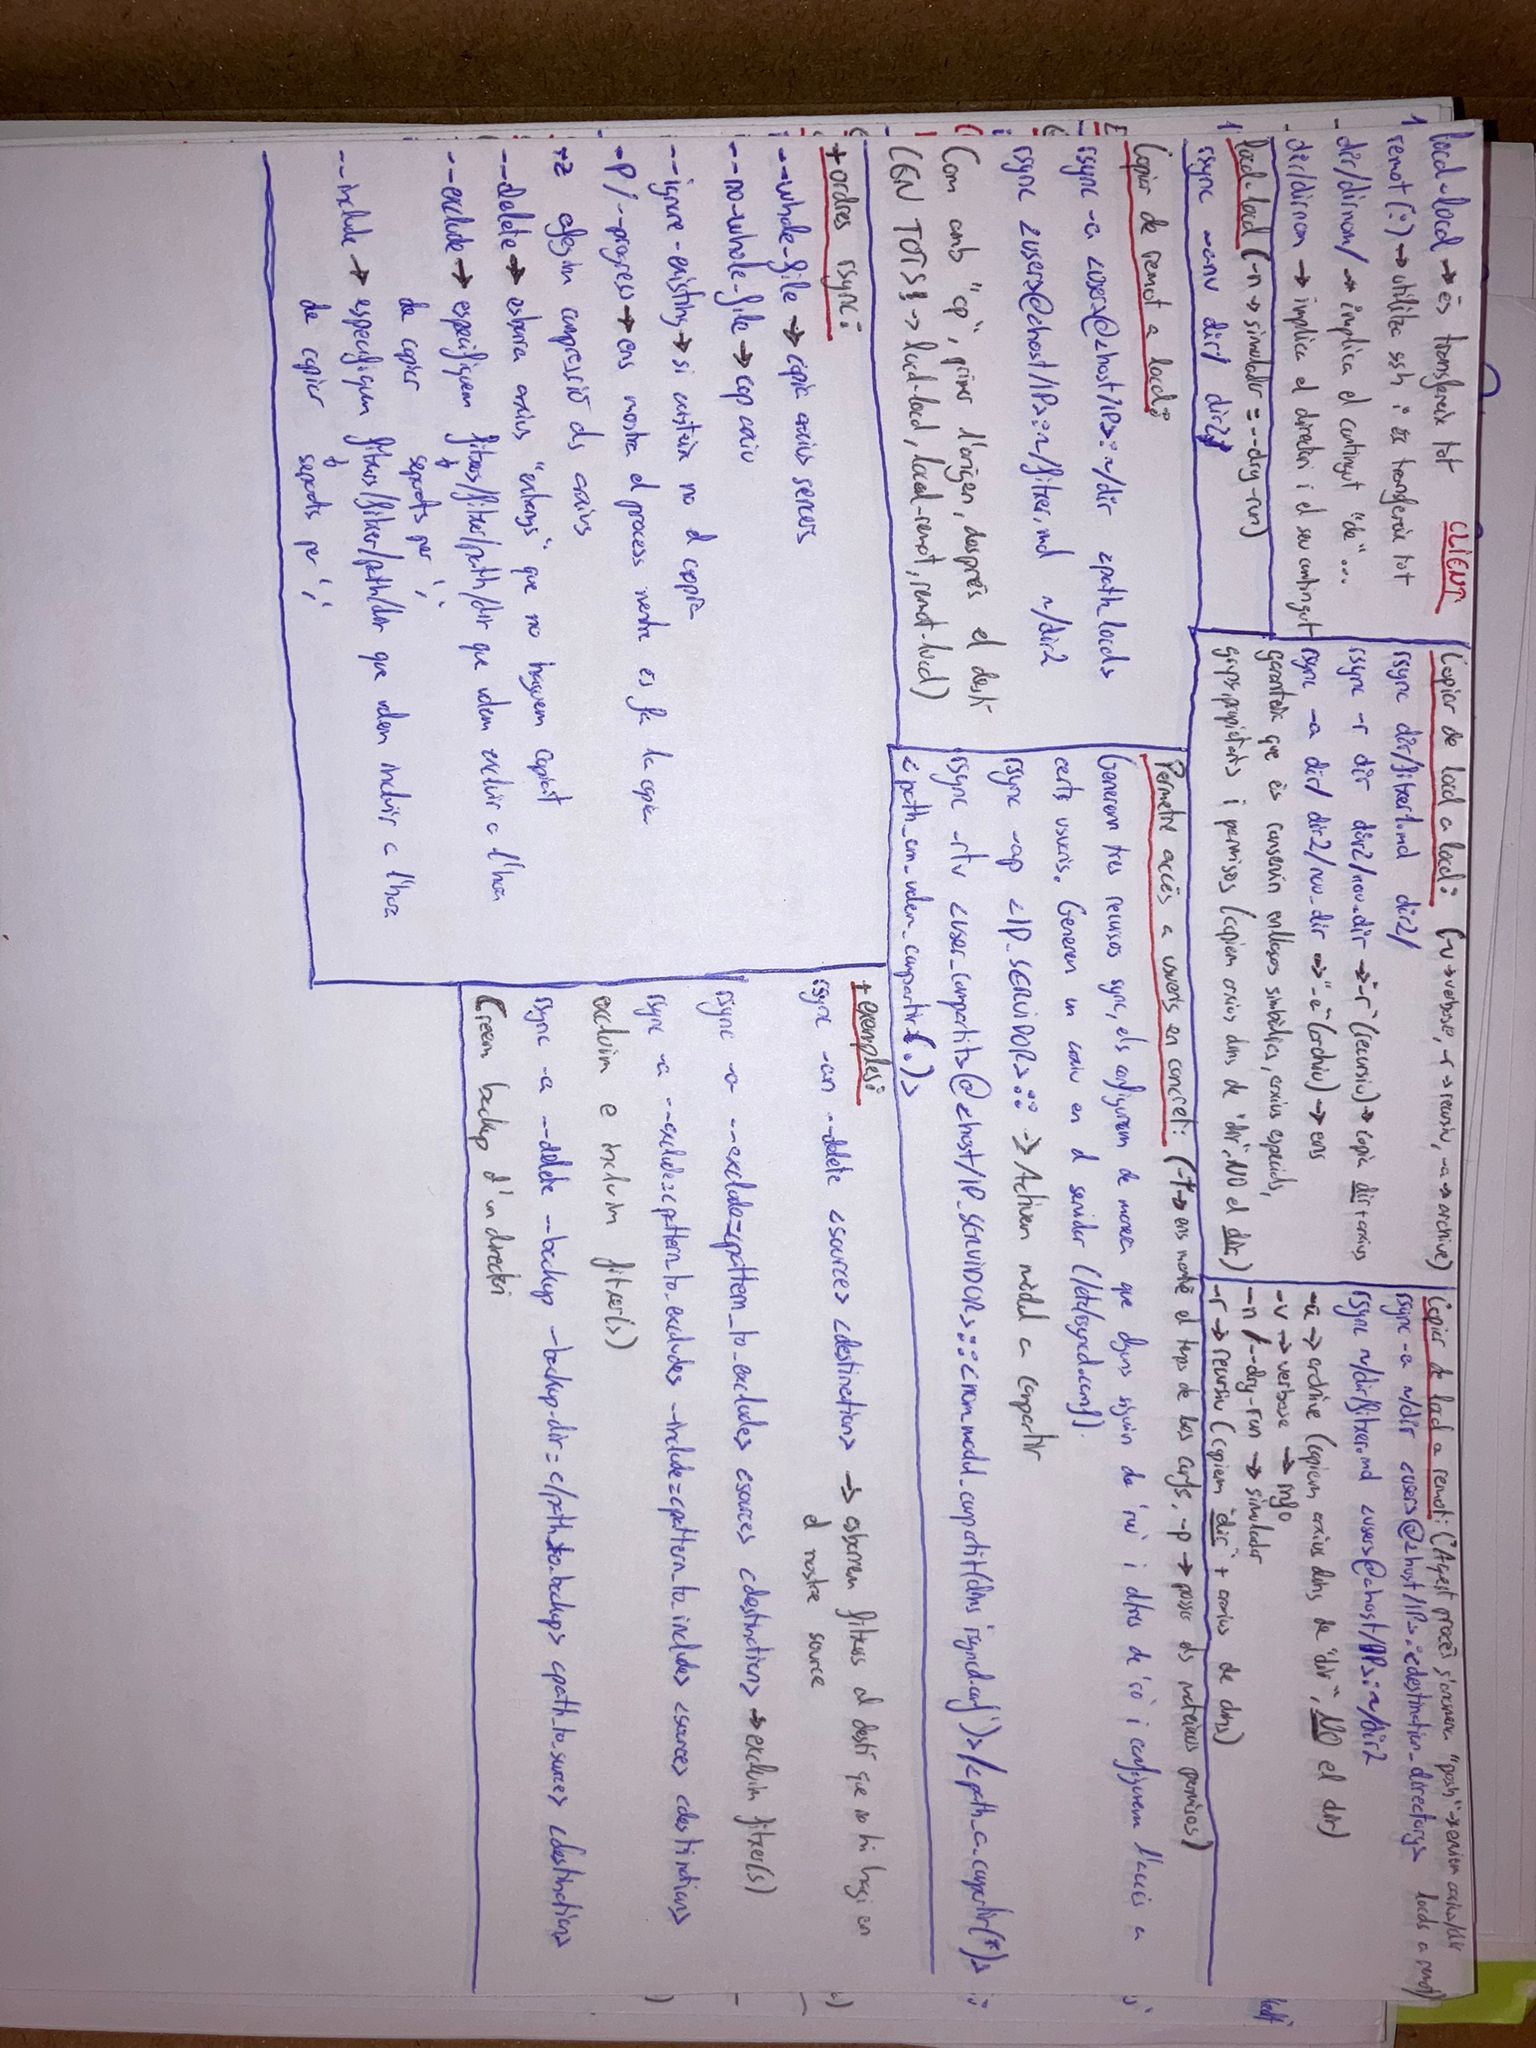 CLIENT:
local-local → és transfereix tot
remot (:) → utilitza ssh i és transfereix tot
dir/dirnom/ → implica el contingut "de"...
dir/dirnom → implica el directori i el seu contingut
local-local (-n → simulador = --dry-run)
rsync -anv dir/ dir2/
Copiar de local a local: (-v → verbose, -r → recursiu, -a → archive)
rsync dir/fitxer1.md dir2/
rsync -r dir dir2/nou_dir → "-r" (recursiu) → copia dir + arxius
rsync -a dir/ dir2/nou_dir → "-a" (archiu) → ens
garanteix que és conservin enllaços simbòlics, arxius especials,
grups, propietaris i permisos (copiem arxius dins de "dir", NO el dir)
Copiar de local a remot: (Aquest procés s'anomena "push" → enviem arxius/dir
locals a remot)
rsync -a ~/dir <user>@<host/IP>:<destination_directory>
rsync ~/dir/fitxer.md <user>@<host/IP>:~/dir2
-a → archive (copiem arxius dins de "dir", NO el dir)
-v → verbose → info
-n / --dry-run → simulador
-r → recursiu (copiem "dir" + arxius de dins)
Copiar de remot a local:
rsync -a <user>@<host/IP>:~/dir <path_local>
rsync <user>@<host/IP>:~/fitxer.md ~/dir2
Com amb "cp", primer l'origen, després el destí
(EN TOTS! → local-local, local-remot, remot-local)
Permetre accés a usuaris en concret: (-t → ens manté el temps de les configs, -p → passar els mateixos permisos)
Generem tres recursos sync, els configurem de manera que alguns siguin de 'rw' i altres de 'ro' i configurem l'accés a
certs usuaris. Generem un arxiu en el servidor (/etc/rsyncd.conf).
rsync -ap <IP_SERVIDOR>:: → Activem mòdul a compartir
rsync -rtv <user_compartit>@<host/IP_SERVIDOR>::<nom_modul_compartit(dins 'rsyncd.conf')>/<path_a_compartir(*)>
<path_on_volem_compartir(.)>
+ ordres rsync:
--whole-file → copia arxius sencers
--no-whole-file → cap arxiu
--ignore-existing → si existeix no el copia
-P / --progress → ens mostra el process mentre és fa la copia
-z afegim compressió als arxius
--delete → esborra arxius "extranys" que no haguem copiat
--exclude → especifiquem fitxers/fitxer/path/dir que volem excluir a l'hora
de copiar separats per ','
--include → especifiquem fitxers/fitxer/path/dir que volem incluir a l'hora
de copiar separats per ','
+ exemples:
rsync -an --delete <source> <destination> → esborrem fitxers al destí que no hi hagi en
el nostre source
rsync -a --exclude=<pattern_to_exclude> <source> <destination> → excluim fitxer(s)
rsync -a --exclude=<pattern_to_exclude> --include=<pattern_to_include> <source> <destination>
excluim e incluim fitxer(s)
rsync -a --delete --backup --backup-dir=</path_to_backup> <path_to_source> <destination>
Creem backup d'un directori